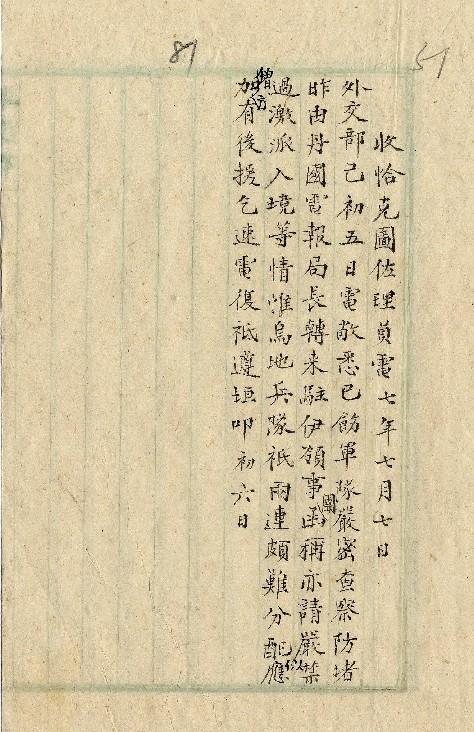 51
81
收恰克圖佐理員電七年七月七日
外交部己初五日電敬悉已飭軍隊嚴密查察防堵
昨由丹國電報局長轉来駐伊領事團函稱亦請嚴禁
過激派入境等情惟烏地兵隊祇兩連頗難分配似應
增加方有後援乞速電復祇遵垣叩初六日